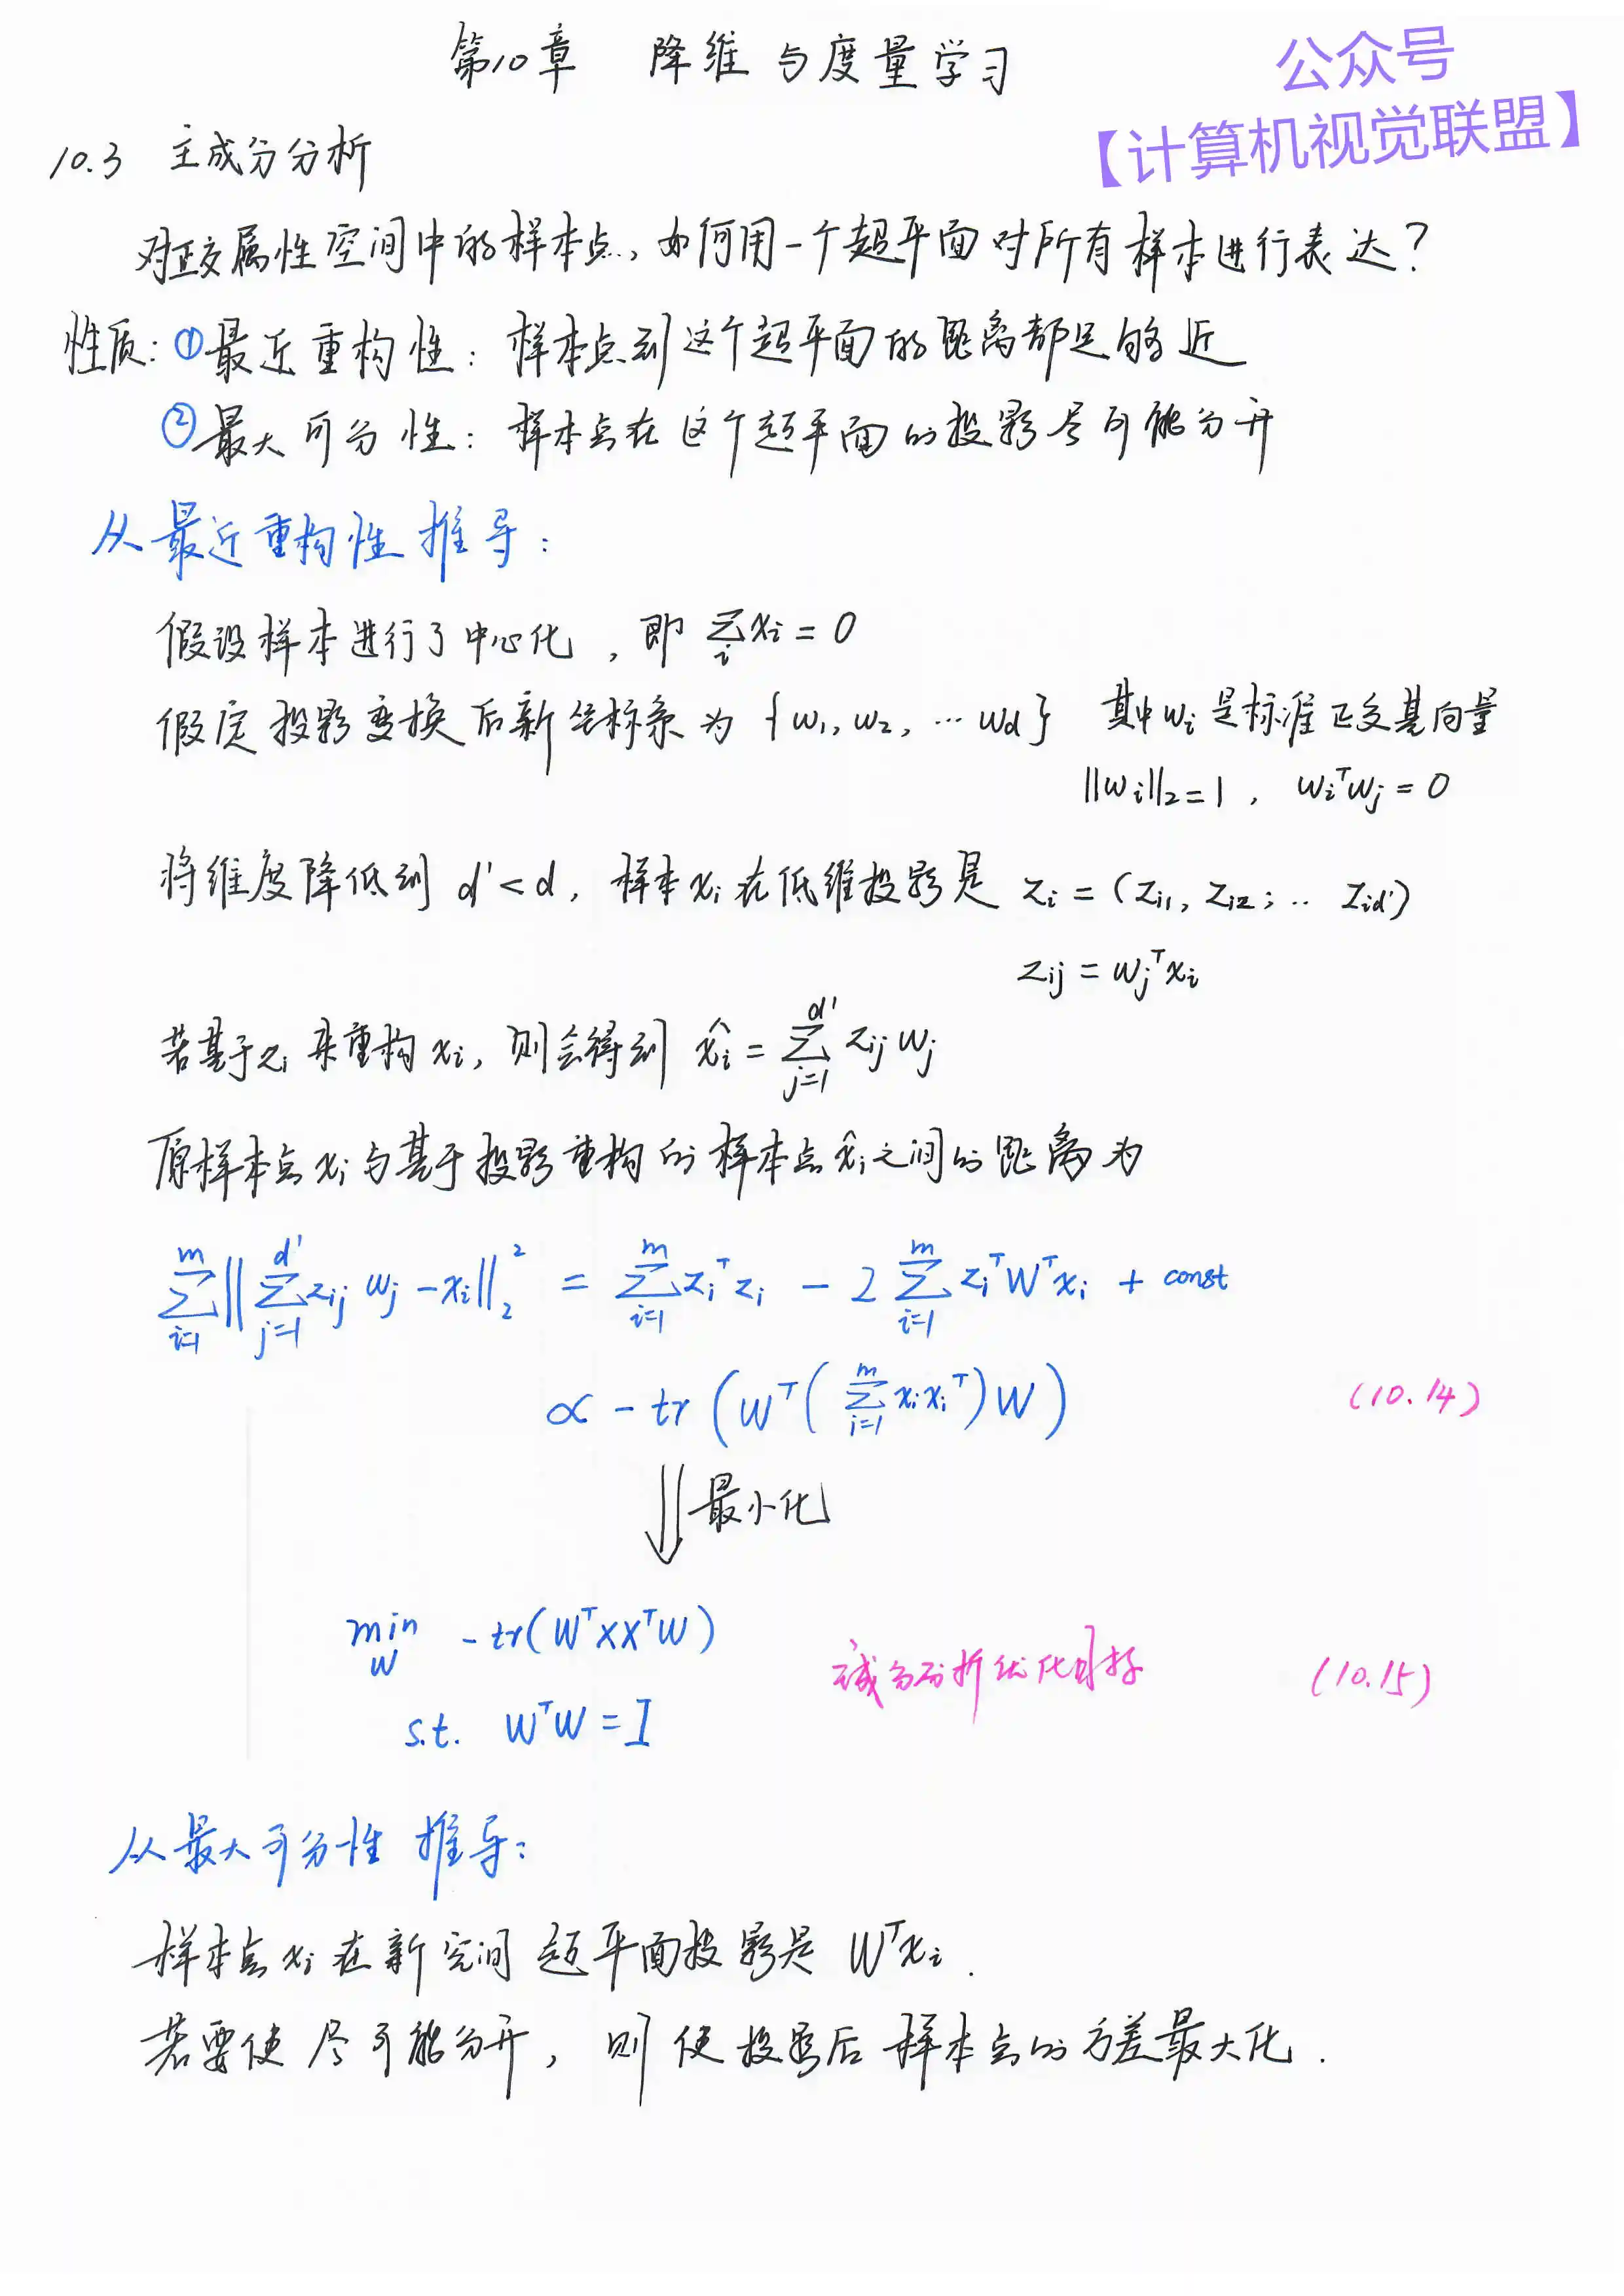 第10章 降维与度量学习
公众号
【计算机视觉联盟】
10.3 主成分分析
对正交属性空间中的样本点，如何用一个超平面对所有样本进行表达？
性质：①最近重构性：样本点到这个超平面的距离都足够近
②最大可分性：样本点在这个超平面的投影尽可能分开
从最近重构性推导：
假设样本进行了中心化，即 ∑_i x_i = 0
假定投影变换后新坐标系为 {w₁, w₂, … w_d} 其中w_i是标准正交基向量
||w_i||₂ = 1, w_i^T w_j = 0
将维度降低到 d' < d, 样本x_i在低维投影是 z_i = (z_i1, z_i2; .. z_id')
z_ij = w_j^T x_i
若基于z_i来重构x_i, 则会得到 x̂_i = ∑_{j=1}^{d'} z_ij w_j
原样本点x_i与基于投影重构的样本点x̂_i之间的距离为
∑_{i=1}^{m} || ∑_{j=1}^{d'} z_ij w_j - x_i ||₂² = ∑_{i=1}^{m} z_i^T z_i - 2 ∑_{i=1}^{m} z_i^T W^T x_i + const
∝ - tr ( W^T ( ∑_{i=1}^{m} x_i x_i^T ) W ) (10.14)
⇓ 最小化
min_W - tr(W^T X X^T W)
主成分分析优化目标 (10.15)
s.t. W^T W = I
从最大可分性推导：
样本点x_i在新空间超平面投影是 W^T x_i.
若要使尽可能分开，则使投影后样本点的方差最大化.